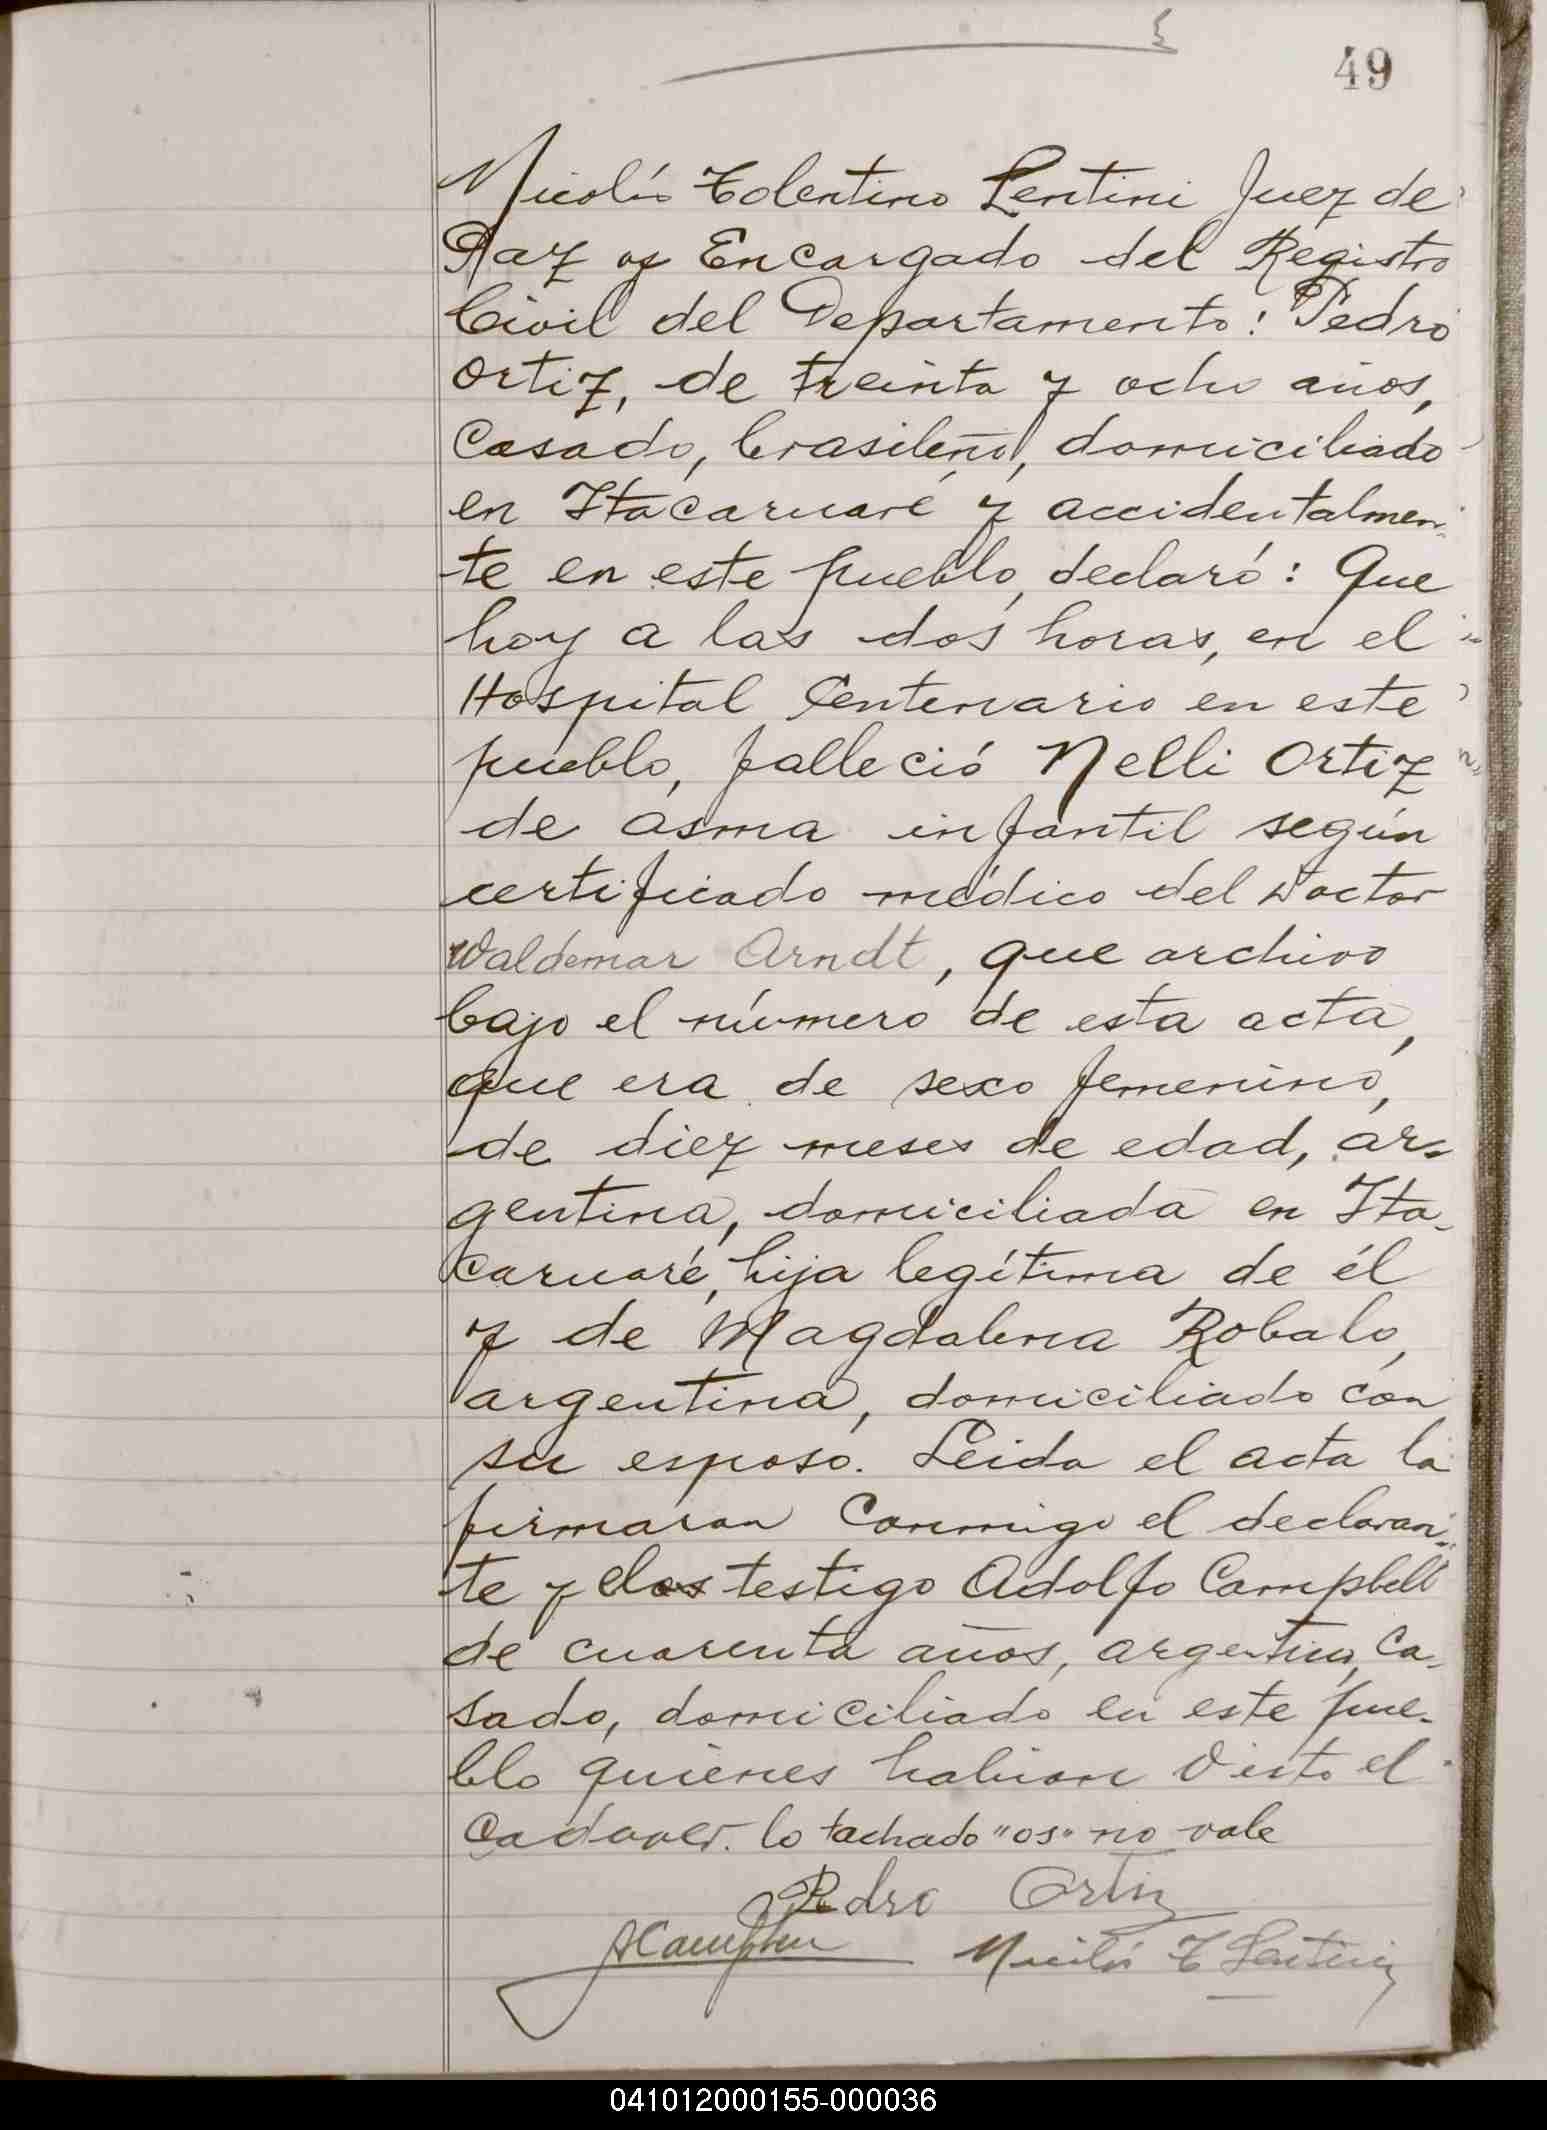 49
Nicolás Tolentino Lentini Juez de
Paz y Encargado del Registro
Civil del Departamento: Pedro
Ortiz, de treinta y ocho años,
casado, brasileño, domiciliado
en Itacaruaré y accidentalmen-
te en este pueblo, declaró: Que
hoy a las dos horas, en el
Hospital Centenario en este
pueblo, falleció Nelli Ortiz
de asma infantil según
certificado médico del Doctor
Waldemar Arndt, que archivo
bajo el número de esta acta,
que era de sexo femenino,
de diez meses de edad, ar-
gentina, domiciliada en Ita-
caruaré, hija legítima de él
y de Magdalena Robalo,
argentina, domiciliado con
su esposo. Leida el acta la
firmaron conmigo el declaran-
te y elos testigo Adolfo Campbell
de cuarenta años, argentino, ca-
sado, domiciliado en este pue-
blo quienes habian visto el
cadaver. lo tachado "os" no vale
Pedro Ortiz
ACampbell Nicolás T Lentini
041012000155-000036